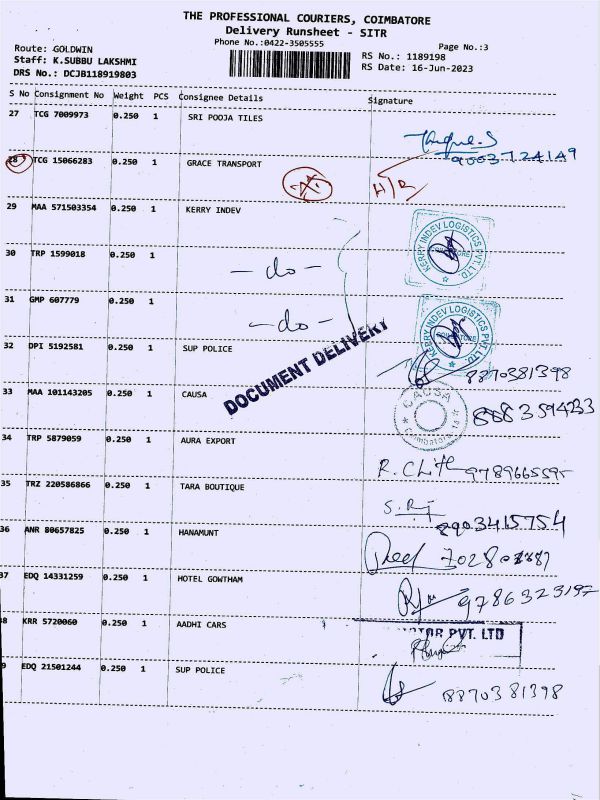 THE PROFESSIONAL COURIERS, COIMBATORE
Delivery Runsheet - SITR
Phone No.:0422-3505555
Page No.:3
Route: GOLDWIN
Staff: K.SUBBU LAKSHMI
DRS No.: DCJB118919803
RS No.: 1189198
RS Date: 16-Jun-2023
S No Consignment No Weight PCS Consignee Details Signature
27 TCG 7009973 0.250 1 SRI POOJA TILES
9003724149
28 TCG 15066283 0.250 1 GRACE TRANSPORT
29 MAA 571503354 0.250 1 KERRY INDEV
KERRY INDEV LOGISTICS PVT. LTD
COIMBATORE
30 TRP 1599018 0.250 1 - do -
31 GMP 607779 0.250 1 - do -
KERRY INDEV LOGISTICS PVT. LTD
COIMBATORE
DOCUMENT DELIVERY
32 DPI 5192581 0.250 1 SUP POLICE
8870381398
33 MAA 101143205 0.250 1 CAUSA
CAUSA
Coimbatore - 14
34 TRP 5879059 0.250 1 AURA EXPORT
35 TRZ 220586866 0.250 1 TARA BOUTIQUE
8903415754
36 ANR 80657825 0.250 1 HANAMUNT
37 EDQ 14331259 0.250 1 HOTEL GOWTHAM
9786323197
8 KRR 5720060 0.250 1 AADHI CARS
PVT. LTD
9 EDQ 21501244 0.250 1 SUP POLICE
8870381398